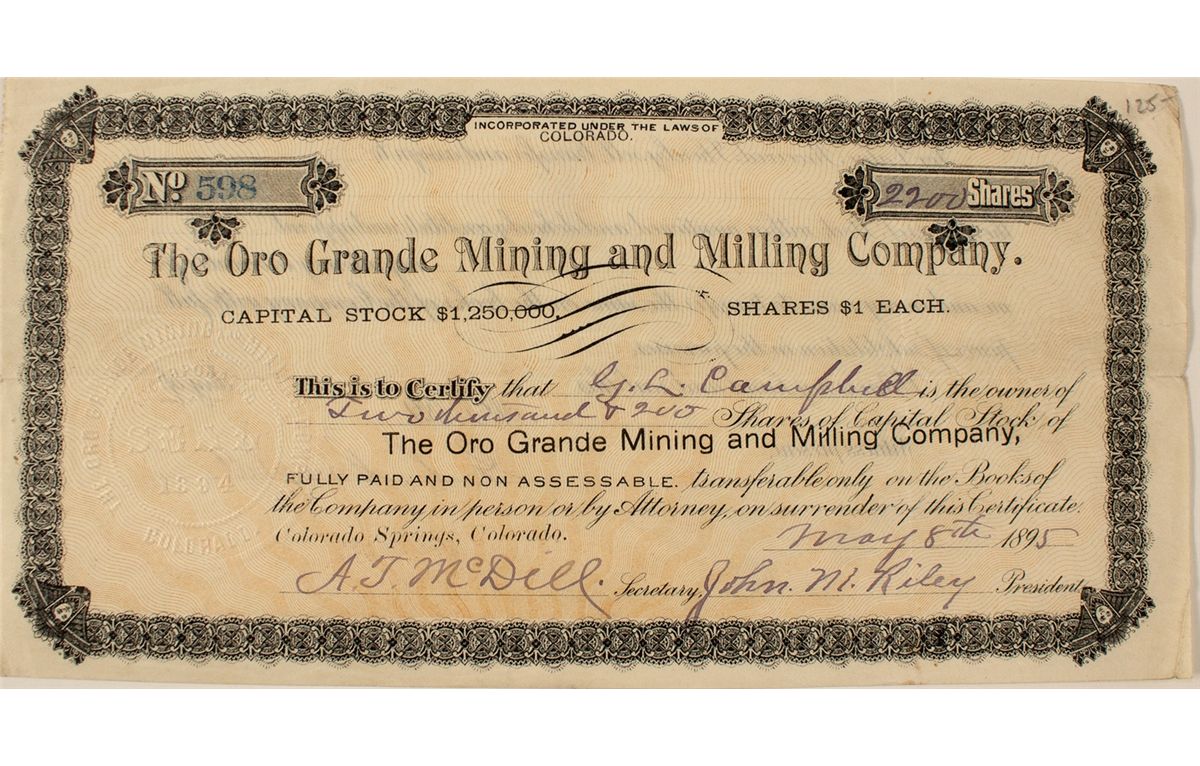 125-
INCORPORATED UNDER THE LAWS OF
COLORADO.
No 598
2200 Shares
The Oro Grande Mining and Milling Company.
CAPITAL STOCK $1,250,000. SHARES $1 EACH.
This is to Certify that G. L. Campbell is the owner of
Two thousand & 200 Shares of Capital Stock of
The Oro Grande Mining and Milling Company,
FULLY PAID AND NON ASSESSABLE. transferable only on the Books of
the Company in person or by Attorney, on surrender of this Certificate.
Colorado Springs, Colorado. May 8th 1895
A. T. McDill. Secretary, John. M. Riley President
1894